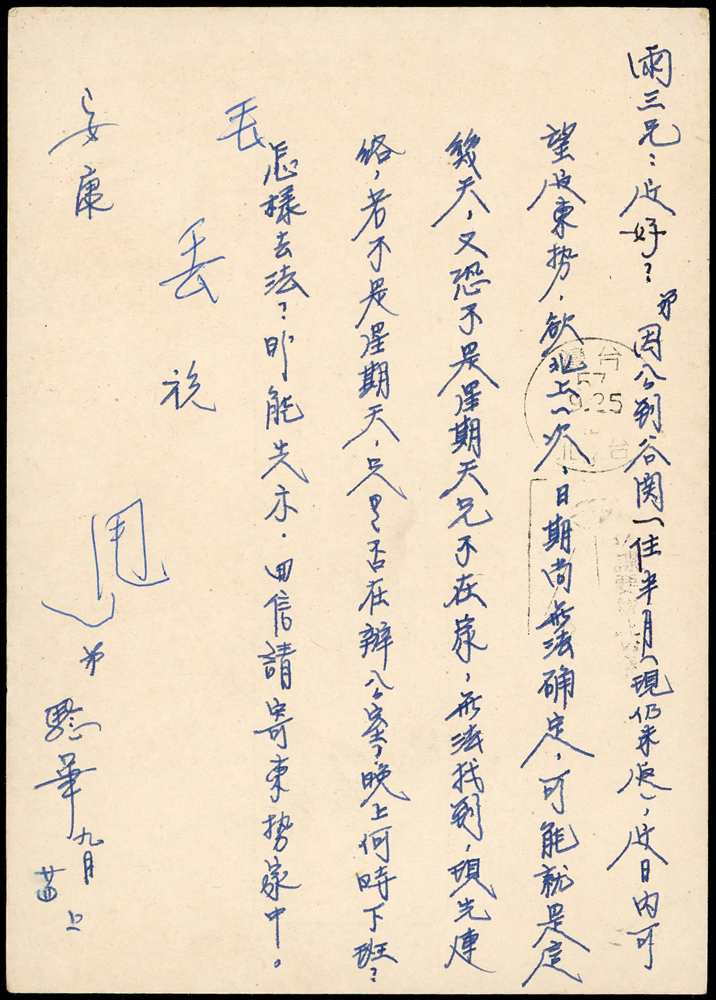 雨三兄：近好？弟因公到谷関（住半月）現仍未返，近日内可
望返東勢，欲北上一次，日期尚無法确定，可能就是這
幾天，又恐不是星期天兄不在家，無法找到，須先連
絡，若不是星期天，兄是否在辦公室，晚上何時下班？
怎樣去法？即能先示．回信請寄東勢家中。
祝
安康
弟
華
九月
廿四
上
台
57
9.25
台
北